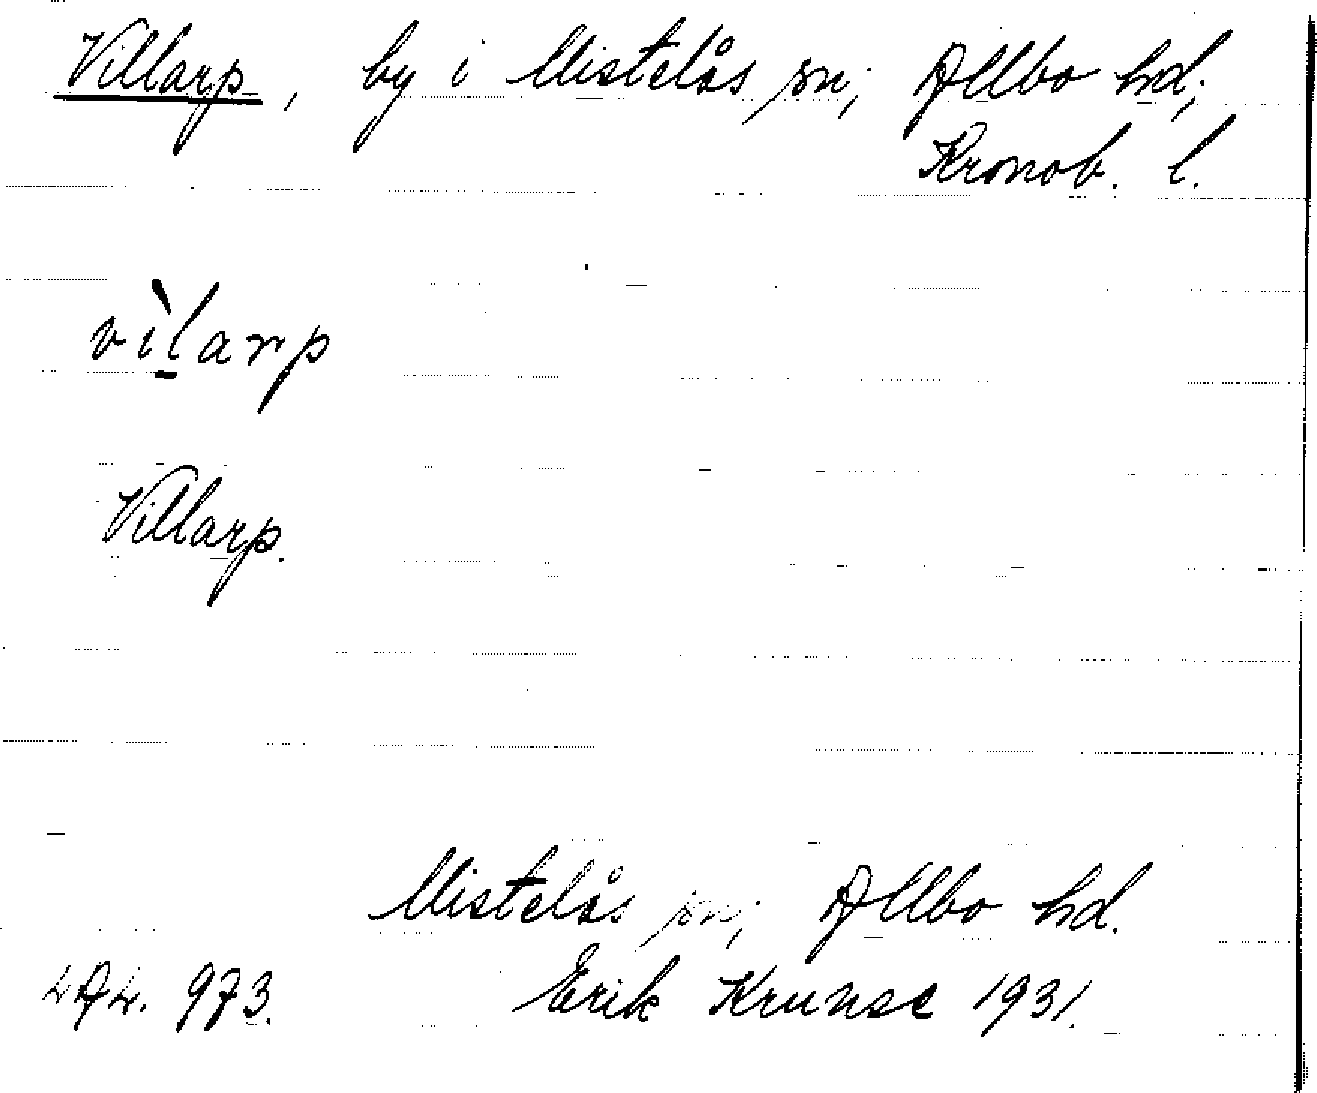 Villarp, by i Mistelås sn; Allbo hd;
Kronob. l.
vìlarp
Villarp.
Mistelås sn; Allbo hd.
973. Erik 1931.